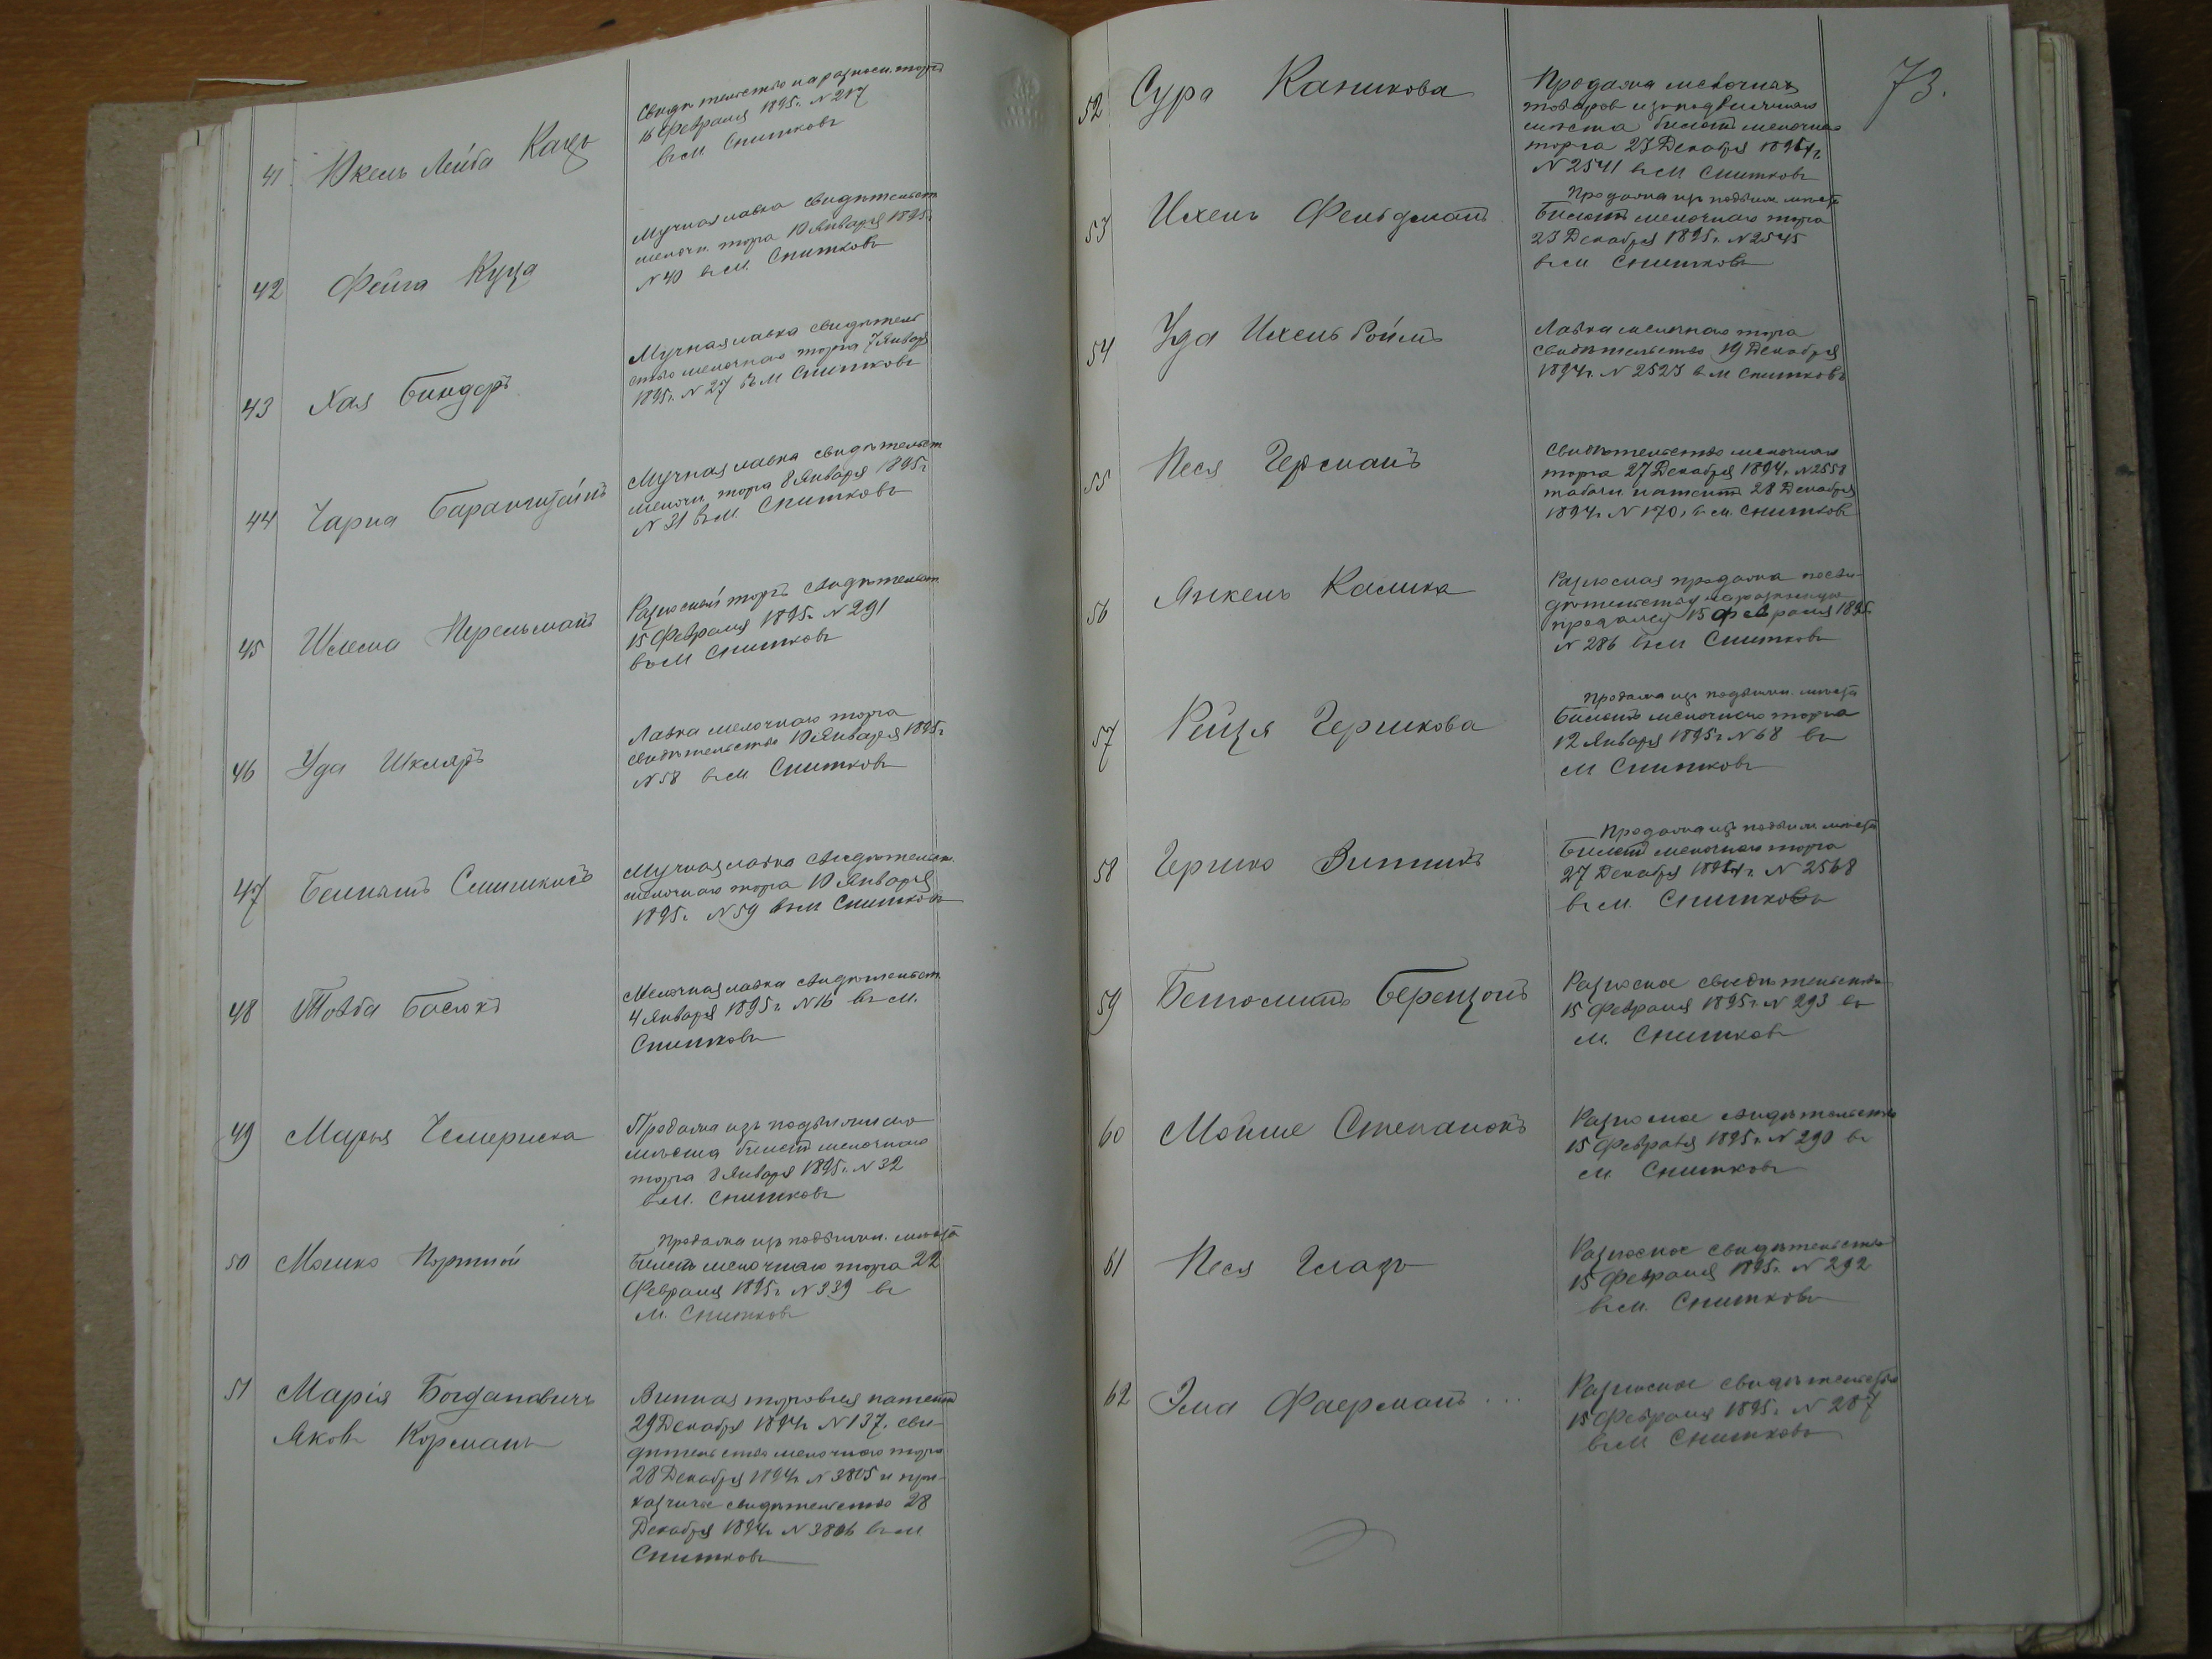 41 Юкель Лейба Кацъ
Свидѣтельство на разносн. торгъ
16 Февраля 1895 г. N 217
въ м. Снитковѣ
42 Фейга Куца
Мучная лавка свидѣтельст.
мелочн. торга 10 Января 1895 г.
N 40 въ м. Снитковѣ
43 Хая Биндеръ
Мучная лавка свидѣтель
ство мелочнаго торга 7 Января
1895 г. N 27 въ м Снитковѣ
44 Чарна Баранштейнъ
Мучная лавка свидѣтельст
мелочн. торга 8 Января 1895 г
N 31 въ м. Снитковѣ
45 Шлема Перельманъ
Разносный торгъ свидѣтельст
15 Февраля 1895 г. N 291
въ м Снитковѣ
46 Уда Шкляръ
Лавка мелочнаго торга
свидѣтельство 10 Января 1895 г
N 58 въ м. Снитковѣ
47 Беньямъ
Мучная лавка свидѣтельст.
мелочнаго торга 10 Января
1895 г. N 59 въ м Снитковѣ
48 Товба Басюкъ
Мелочная лавка свидѣтельст.
4 Января 1895 г. N 16 въ м.
Снитковѣ
49 Марья Чемериска
Продажа изъ подвижнаго
мѣста билетъ мелочнаго
торга 8 Января 1895 г. N 32
въ м. Снитковѣ
50 Мошко Портной
Продажа изъ подвижн. мѣста
Билетъ мелочнаго торга 22
Февраля 1895 г. N 339 въ
м. Снитковѣ
51 Марія Богдановичъ
Яковъ Корманъ
Винная торговля патентъ
29 Декабря 1894 г N 137, сви-
дѣтельство мелочнаго торга
28 Декабря 1894 г N 3805 и при-
казчичье свидѣтельство 28
Декабря 1894 г N 3806 въ м
Снитковѣ
73.
52 Сура Каникова
Продажа мелочныхъ
товаровъ изъ подвижнаго
мѣста билетъ мелочнаго
торга 23 Декабря 1894 г.
N 2541 въ м Снитковѣ
53 Ихель Фельдманъ
Продажа изъ подвижн. мѣста
Билетъ мелочнаго торга
23 Декабря 1895 г. N 2545
въ м Снитковѣ
54 Уда Ихель Ройтъ
Лавка мелочнаго торга
свидѣтельство 19 Декабря
1894 г. N 2523 въ м Снитковѣ
55 Песя Герсманъ
Свидѣтельство мелочнаго
торга 27 Декабря 1894 г. N 2558
табачн. патентъ 28 Декабря
1894 г N 170, въ м. Снитковѣ
56 Янкель Калика
Разносная продажа по сви-
дѣтельству на разносную
продажу 15 Февраля 1895
N 286 въ м Снитковѣ
57 Рейзя Гершкова
Продажа изъ подвижн. мѣста
Билетъ мелочнаго торга
12 Января 1895 г N 68 въ
м Снитковѣ
58 Гершко Витникъ
Продажа изъ подвижн мѣста
Билетъ мелочнаго торга
27 Декабря 1894 г. N 2568
въ м. Снитковѣ
59 Берензонъ
Разносное свидѣтельство
15 Февраля 1895 г. N 293 въ
м. Снитковѣ
60 Мойше Степанокъ
Разносное свидѣтельство
15 Февраля 1895 г. N 290 въ
м. Снитковѣ
61 Песя Глазъ
Разносное свидѣтельство
15 Февраля 1895 г. N 292
въ м. Снитковѣ
62 Эла Фаерманъ ...
Разносное свидѣтельство
15 Февраля 1895 г. N 287
въ м Снитковѣ